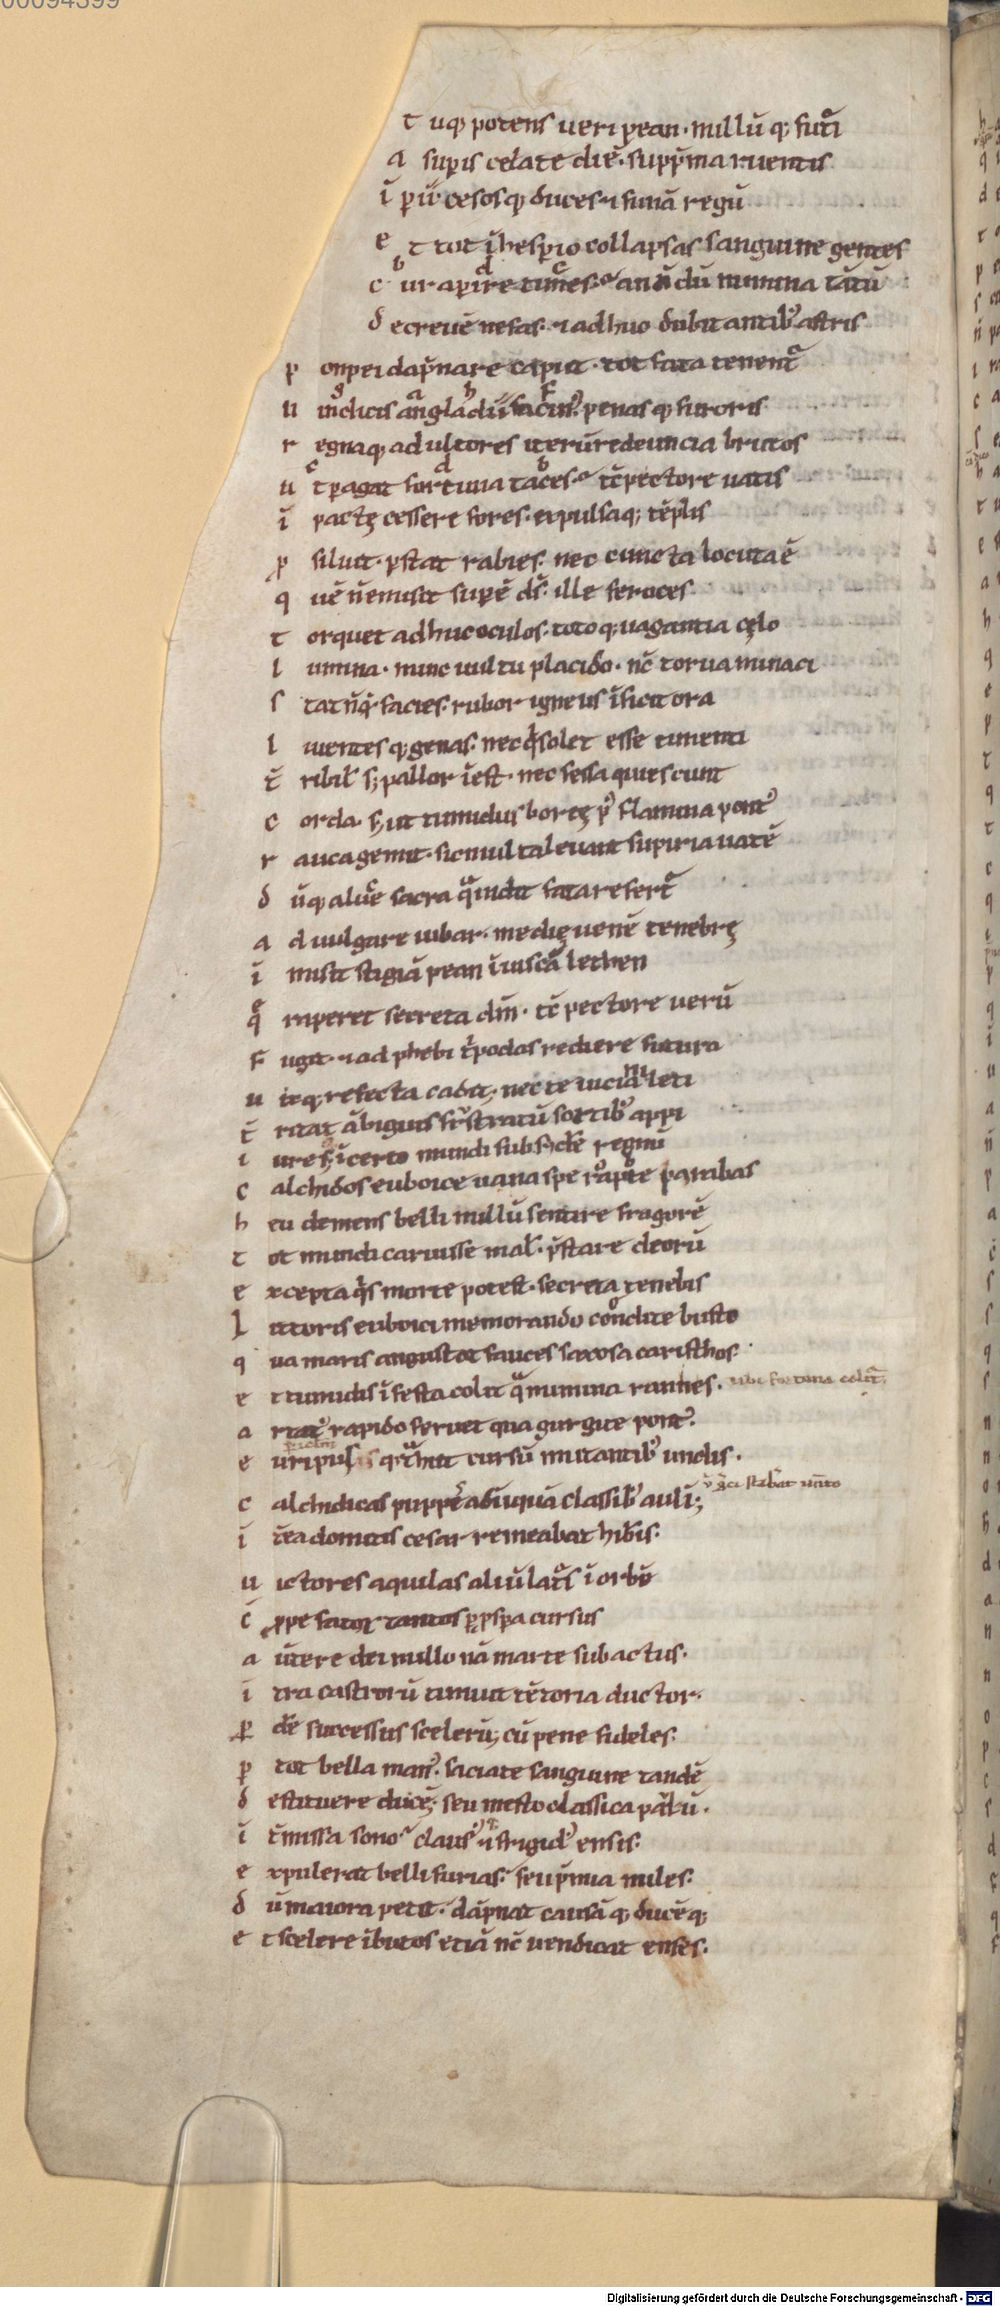 00094399
t uq, potens ueri pean. nillū q, futͥi
a supis celate diē. supp̄ma ruentis
ī pii. cesosq, duces ⁊ funā regū
e t tot ī hesperio collapsas sanguine gentes
b d c
c ur aperire times. an n̄dū numina tātū
d ecreuē nefas. ⁊ adhuc dubitantib; astris
p onpei dāpnare caput. tot fata tenent᷑
g a h f
u indicis an gladii facin᷒. penas q, furoris
r egnaq, ad ultores iterū redeuncia brutos
c d b
u t pagat fortuna taces. tē pectore uatis
ī pactę cessere fores. expulsaq; tēplis
p siluit. pstat rabies. nec cuncta locutaē
q uē n̄ emisit supē ds̄. ille feroces
t orquet adhuc oculos. toto q; uagantia cęlo
l umina. nunc uultu placido. nc̄ torua minaci
s tat nq̄. facies. rubor igneus īficit ora
l iuentes q, genas. nec qͥ solet esse timenti
t̄ ribil̄ s; pallor īest. nec fessa quiescunt
c orda. s; ut tumidus boreę p᷒ flamina pont᷒
r auca gemit. sic multa leuant suspiria uatē
d ūq, a luce sacra qͣ uidit fata refert᷑
a d uulgare iubar. medię uenē tenebrę
ī misit stigiā pean ī uiscā lethen
q̄ raperet secreta dm̄. tē pectore uerū
f ugit. ⁊ ad phebi tͥpodas rediere futura
u ix q, refecta cadit. nec te uicinia leti
t̄ ritat ābiguis frͧstratū sortib; appi
i ure s; īcerto mundi subsidē regnū
c alchidos euboice uana spe rapte paribas
h eu demens belli nillū sentire fragorē
t ot mundi caruisse mal̄. pͥstare deorū
e xcepta qͥs morte potest. secreta tenebis
l itoris euboici memorando condite busto
q ua maris angustat fauces saxosa caristhos
e t tumidis īfesta colit qͣ numina ramnes. ubi fortuna colit᷑
a rtat᷒ rapido feruet qua gurgite pont᷒.
e uripus qͣ trahit cursū mutantib; undis.
c alchidicas puppes ad iniquā classib; auli;
ī tea domitis cesar remeabat hiberis.
u ictores aquilas aliū latͥ ī orbē
c̄ ppe fatoꝝ tantos p pspa cursus
a uertere dei nullo nā marte subactus.
ī tra castroꝝū timuit tētoria ductor.
p dē successus scelerū; cū pene fideles.
p tot bella man᷒. saciate sanguine tandē
d estituere ducē; seu mesto classica paulū.
ī t̄missa sono. claus᷒ ⁊ frigid᷒ ensis.
e xpulerat belli furias. seu pͥmia miles.
d ū maiora petit. dāpnat causā q, ducē q,
e t scelere ībutos etiā nc̄ uendicat enses.
Digitalisierung gefördert durch die Deutsche Forschungsgemeinschaft - DFG